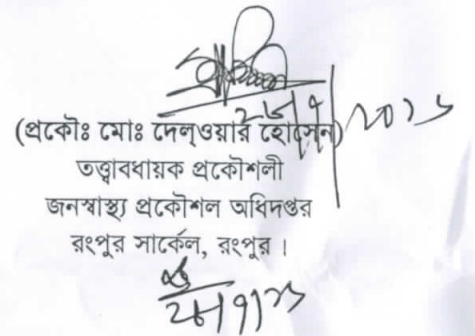 (প্রকৌঃ মোঃ দেল্ওয়ার হোসেন)
তত্ত্বাবধায়ক প্রকৌশলী
জনস্বাস্থ্য প্রকৌশল অধিদপ্তর
রংপুর সার্কেল, রংপুর ।